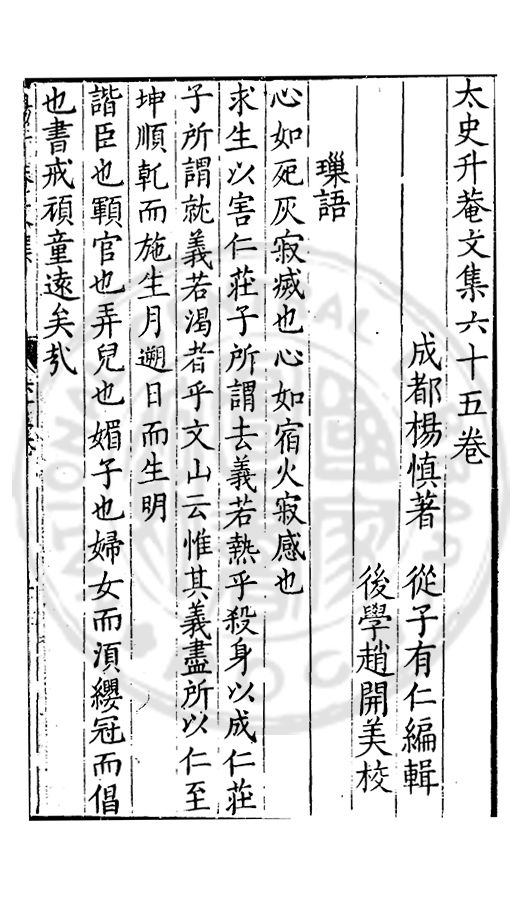 太史升菴文集六十五卷
成都楊慎著 從子有仁編輯
後學趙開美校
璅語
心如死灰寂滅也心如宿火寂感也
求生以害仁莊子所謂去義若熱乎殺身以成仁莊
子所謂就義若渴者乎文山云惟其義盡所以仁至
坤順乾而施生月遡日而生明
諧臣也顆官也弄兒也媚子也婦女而湏纓冠而倡
也書戒頑童遠矣㢤